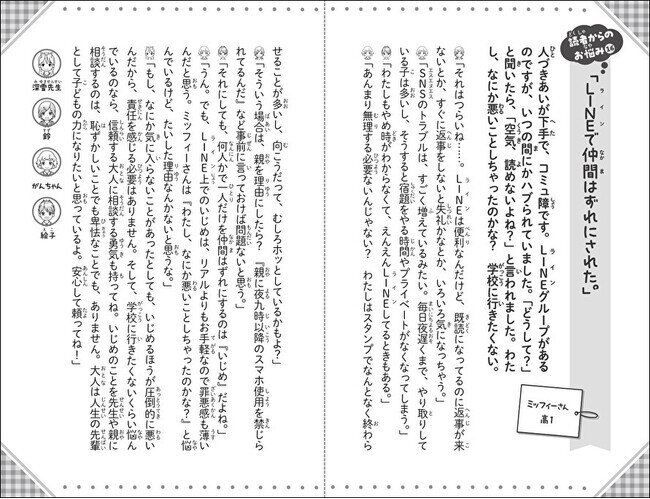 読者からのお悩み14
「LINEで仲間はずれにされた。」
ミッフィーさん
高1
人づきあいが下手で、コミュ障です。LINEグループがある
のですが、いつの間にかハブられていました。「どうして?」
と聞いたら、「空気、読めないよね?」と言われました。わた
し、なにか悪いことしちゃったのかな? 学校に行きたくない。
「それはつらいね……。LINEは便利なんだけど、既読になってるのに返事が来
ないとか、すぐに返事をしないと失礼かなとか、いろいろ気になっちゃう。」
「SNSのトラブルは、すごく増えているみたい。毎日夜遅くまで、やり取りして
いる子は多いし、そうすると宿題をやる時間やプライベートがなくなってしまう。」
「わたしもやめ時がわからなくて、えんえんLINEしてるときもある。」
「あんまり無理する必要ないんじゃない? わたしはスタンプでなんとなく終わら
せることが多いし、向こうだって、むしろホッとしているかもよ?」
「そういう場合は、親を理由にしたら? 『親に夜九時以降のスマホ使用を禁じら
れてるんだ』など事前に言っておけば問題ないと思う。」
「それにしても、何人かで一人だけを仲間はずれにするのは『いじめ』だよね。」
「うん。でも、LINE上でのいじめは、リアルよりもお手軽なので罪悪感も薄い
んだと思う。ミッフィーさんは『わたし、なにか悪いことしちゃったのかな?』と悩
んでいるけど、たいした理由なんかないと思うな。」
「もし、なにか気に入らないことがあったとしても、いじめるほうが圧倒的に悪い
んだから、責任を感じる必要はありません。そして、学校に行きたくないくらい悩ん
でいるのなら、信頼する大人に相談する勇気も持ってね。いじめのことを先生や親に
相談するのは、恥ずかしいことでも卑怯なことでも、ありません。大人は人生の先輩
として子どもの力になりたいと思っているよ。安心して頼ってね!」
深雪先生
鈴
がんちゃん
絵子